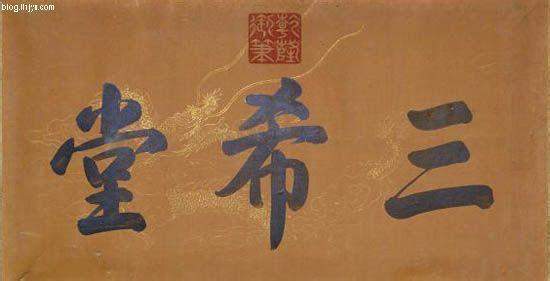 blog.lhjyx.com
乾隆御筆
三希堂